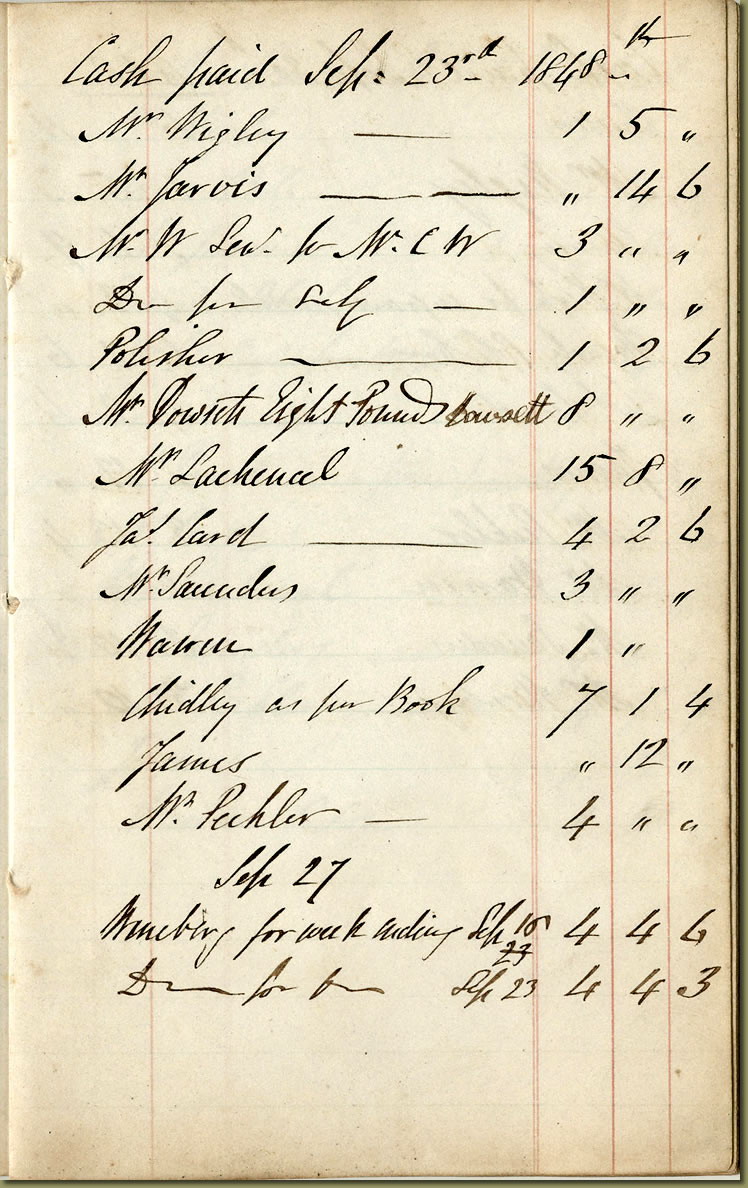 Cash paid Sep: 23rd 1848 th
Mr Wigley — 1 5 "
Mr. Jarvis — — " 14 6
Mr. W Senr. for Mr. C W 3 " "
Do for Self — 1 " "
Polisher — 1 2 6
Mr. Dowsett Eight Pounds Dowsett 8 " "
Mr. Lachenal 15 8 "
Jas. Card — 4 2 6
Mr. Saunders 3 " "
Warren 1 "
Chidley as per Book 7 1 4
James " 12 "
Mr. Pechler — 4 " "
Sep 27
for week ending Sep 16 4 4 6
23
Do for Do Sep 23 4 4 3